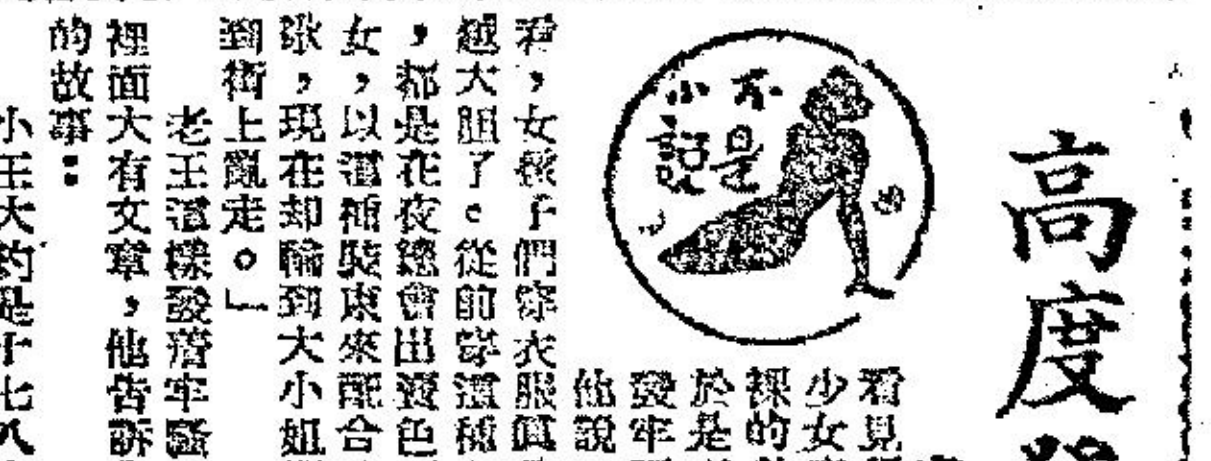 高度
不是
小說
看見
少女
裸的
於是
發牢
他說
看,女孩子們穿衣服真
越大胆了。從前穿這種
,都是在夜總會出賣色
女,以這種裝束來配合
歌,現在却輪到大小姐
到街上亂走。」
老王這樣發着牢騷
裡面大有文章,他告訴
的故事:
小王大約是十七八